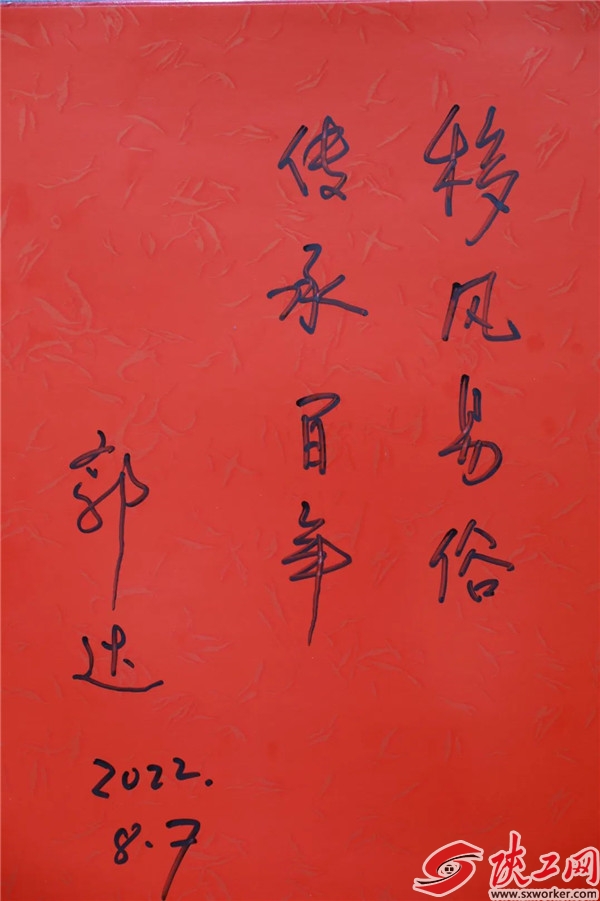 移风易俗
传承百年
郭达
2022.
8.7
陕工网
www.sxworker.com